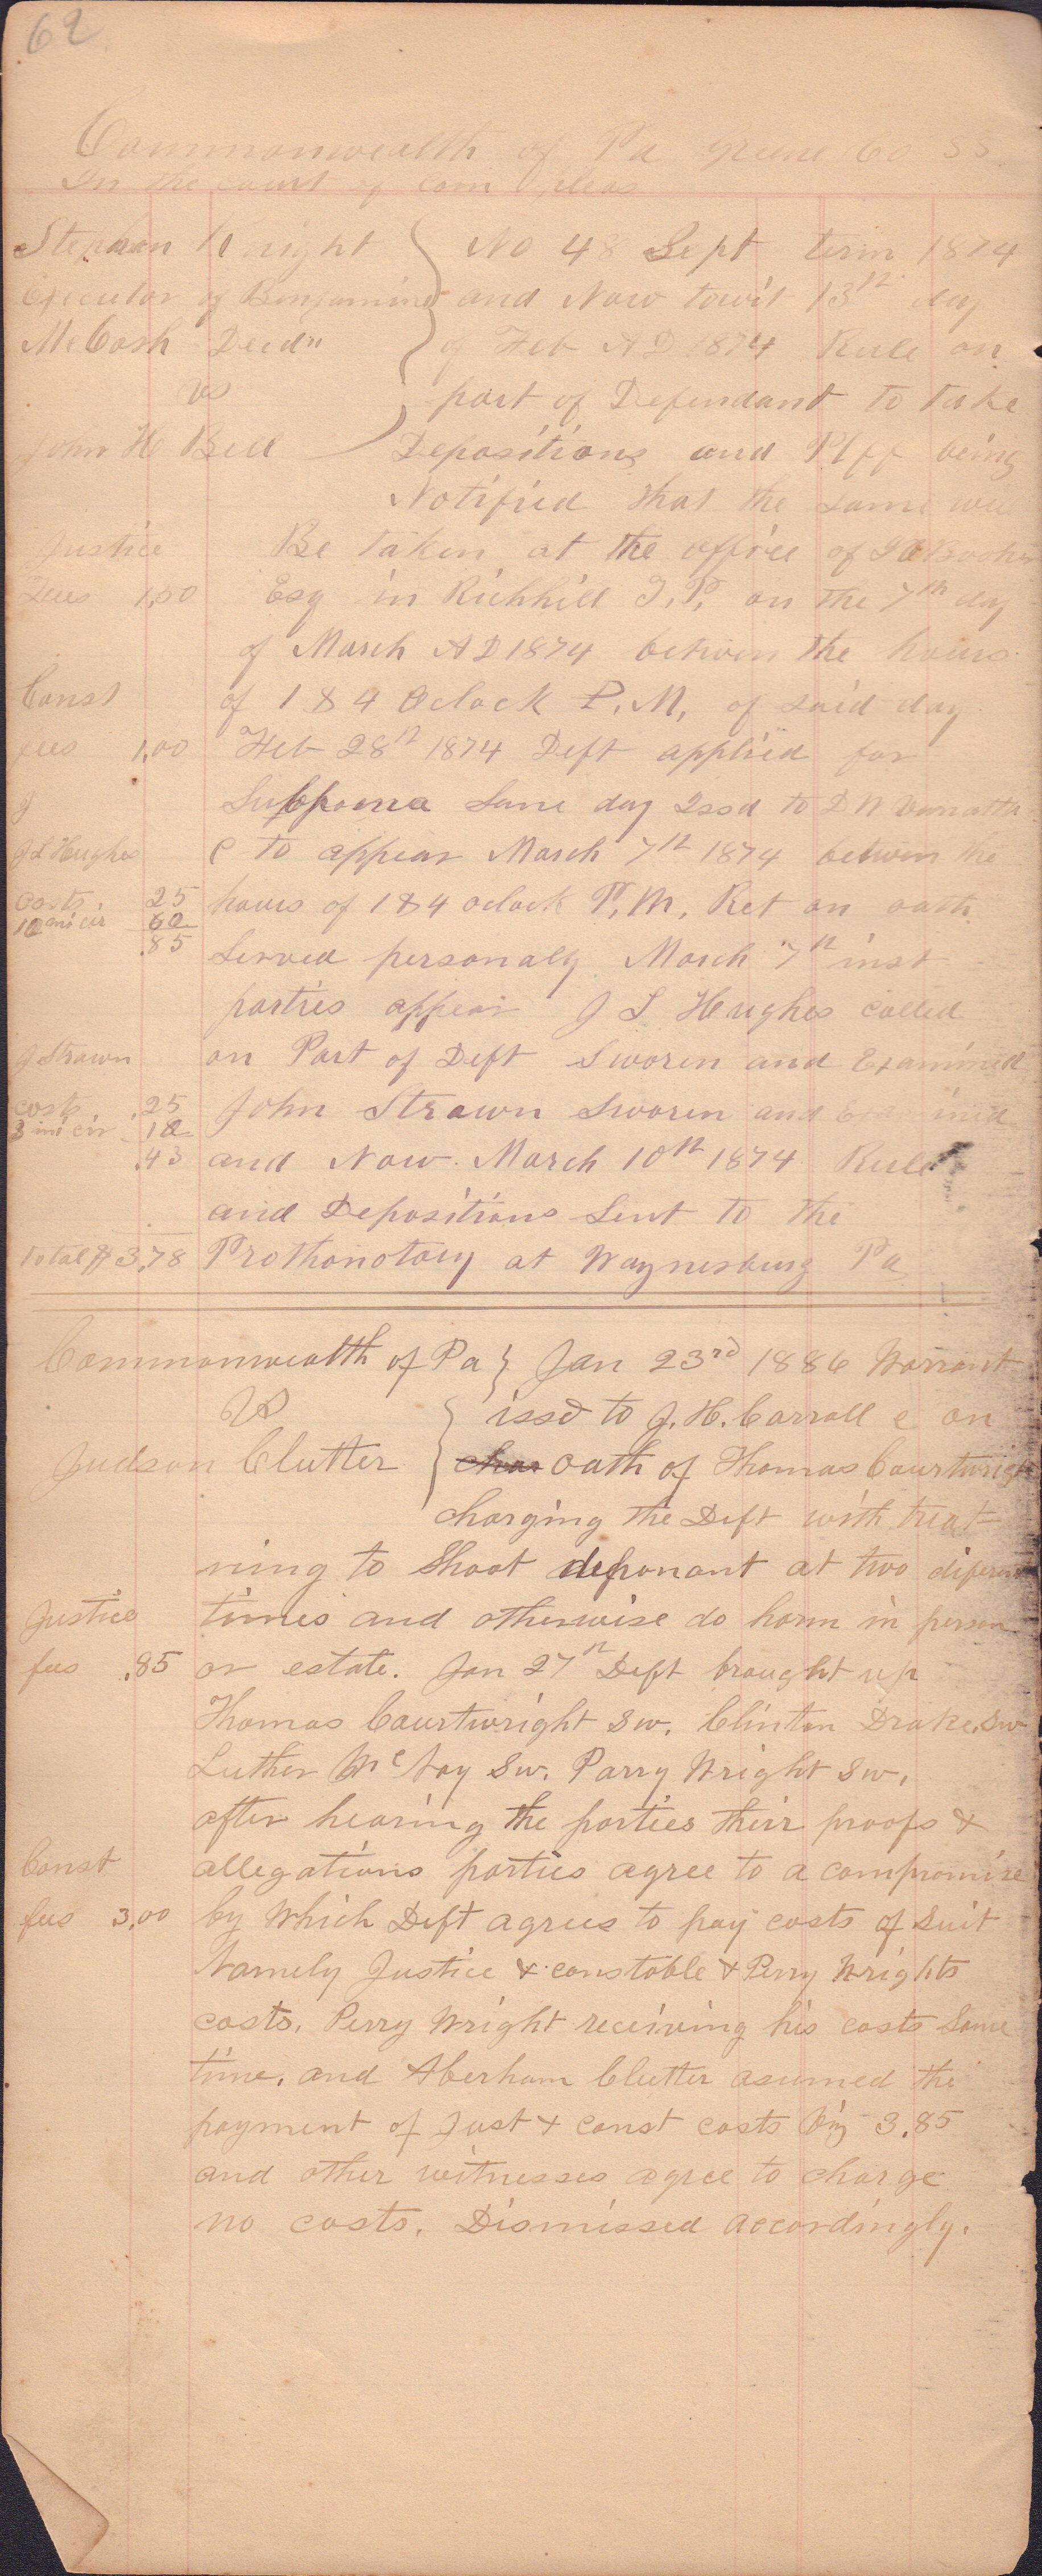 62
Commonwealth of Pa Greene Co SS
In the court of com pleas
Stephen Knight
Executor of Benjamine
McCosh Decdn
vs
John H Bell
No 48 Sept term 1874
and Now towit 13th day
of Feb AD 1874 Rule on
part of Defendant to take
Depositions and Plff being
Notified that the same will
Be taken at the office of
Esq in Richhill T.P. on the 7th day
of March AD 1874 betwen the hours
of 1 & 4 Oclock P.M. of said day
Feb 28th 1874 Deft applied for
Subpoena Same day Issd to D W Vanatta
C to appear March 7th 1874 betwen the
hours of 1 & 4 oclock P.M. Ret on oath
Served personaly March 7th inst
parties appear J L Hughes called
on Part of Deft Sworen and Examined
John Strawn Sworen and Examined
and Now March 10th 1874 Rule
and Depositions Sent to the
Prothonotary at Waynesburg Pa
Justice
Fees 1,00
Const
fees 1,00
J
J L Hughes
costs. 25
10 mi cir 60
.85
J Strawn
costs. .25
3 mi cir 18
.43
Total $ 3.78
Commonwealth of Pa
VS
Judson Clutter
Jan 23rd 1886 Warrant
issd to J. H. Carroll C on
char oath of Thomas Courtwright
charging the Deft with treat
ning to Shoot deponant at two diferent
times and otherwise do harm in person
or estate. Jan 27th Deft brought up
Thomas Courtwright Sw. Clinton Drake. Sw
Luther Sw. Parry Wright Sw.
after hearing the parties their proofs &
allegations parties agree to a compromise
by Which Deft agrees to pay costs of Suit
Namely Justice & constable & Perry Wrights
costs. Perry Wright receiving his costs Same
time. and Aberham Clutter asumed the
payment of Just & const costs Viz 3.85
and other witnesses agree to charge
no costs. Dismissed accordingly.
Justice
fees .85
Const
fees 3.00